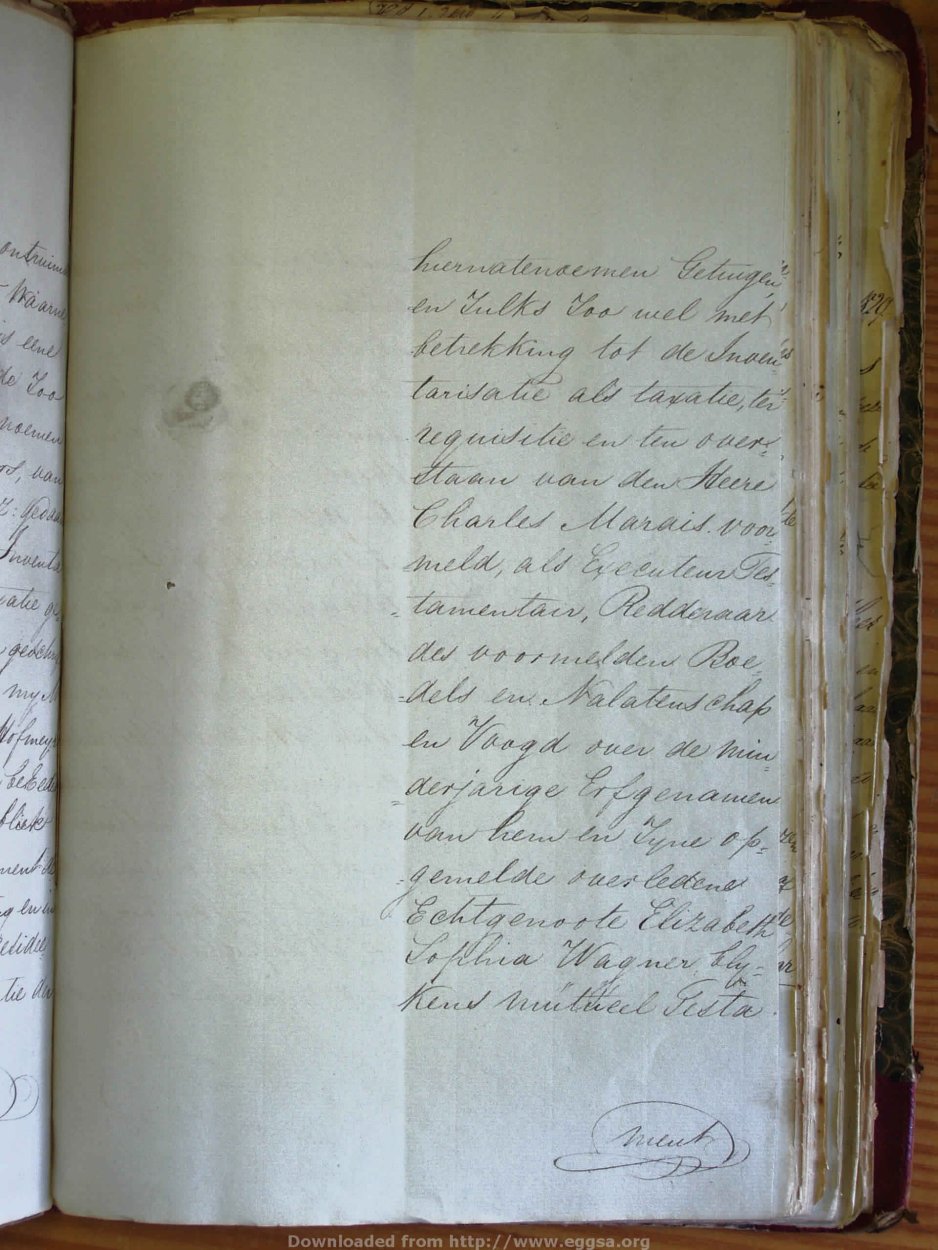 ontruim
Waarne
is eene
de Zoo
noemen
van
Inventa
my
Hofmey
bliek
hiernatenoemen Getuigen
en Zulks Zoo wel met
betrekking tot de Inven=
tarisatie als taxatie, ter
requisitie en ten over=
staan van den Heere
Charles Marais voor
meld, als Executeur Tes=
=tamentair, Redderaar
des voormelden Boe=
=dels en Nalatenschap
en Voogd over de min
=derjarige Erfgenamen
van hem en Zyne op=
=gemelde overledene
Echtgenoote Elizabeth
Sophia Wagner bly=
kens mutueel Testa
ment
Downloaded from http://www.eggsa.org